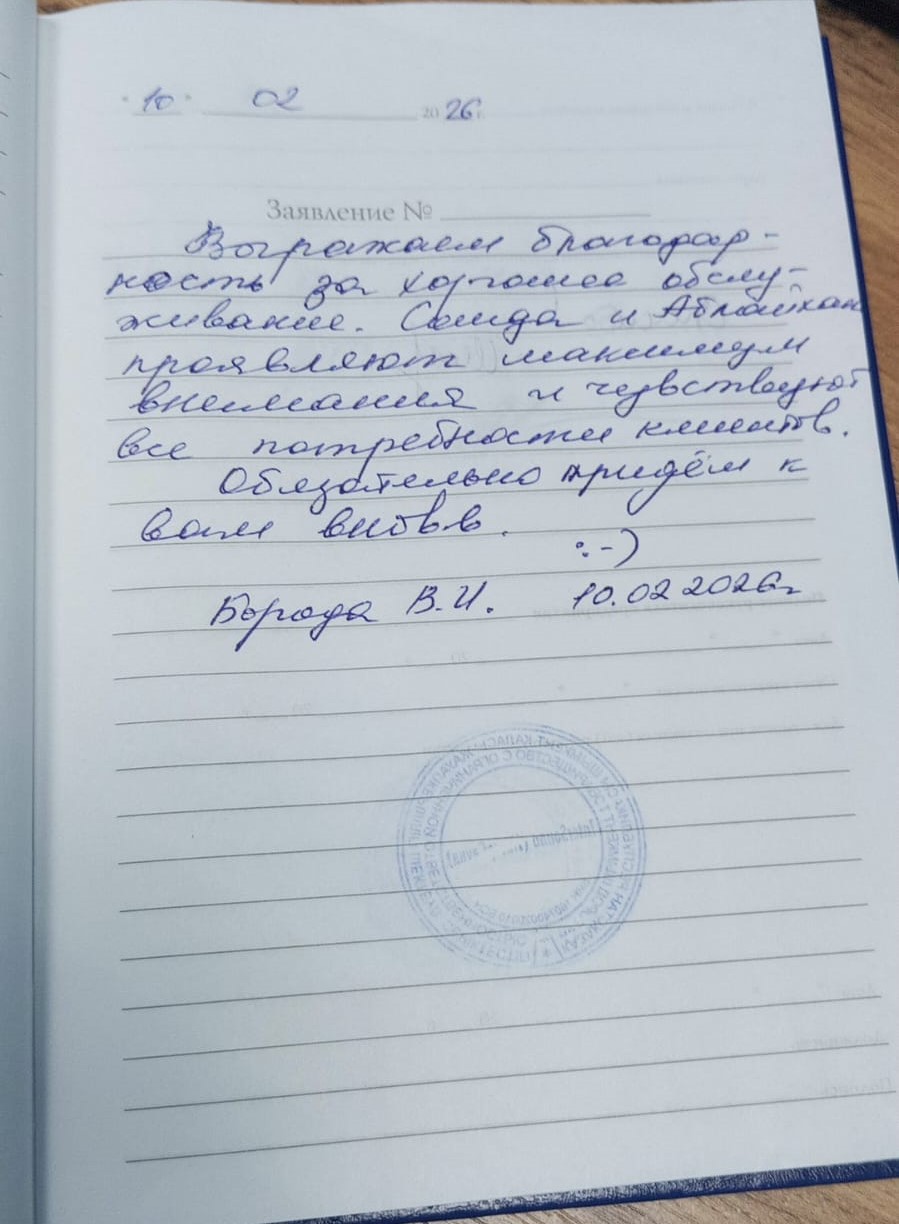 "10" 02 2026 г.
Заявление № 
Выражаем благодар-
ность за хорошее обслу-
живание. Саида и Аблайхан
проявляют максимум
внимания и чувствуют
все потребности клиентов.
Обязательно придём к
вам вновь.
:-)
Борода В.И. 10.02 2026г